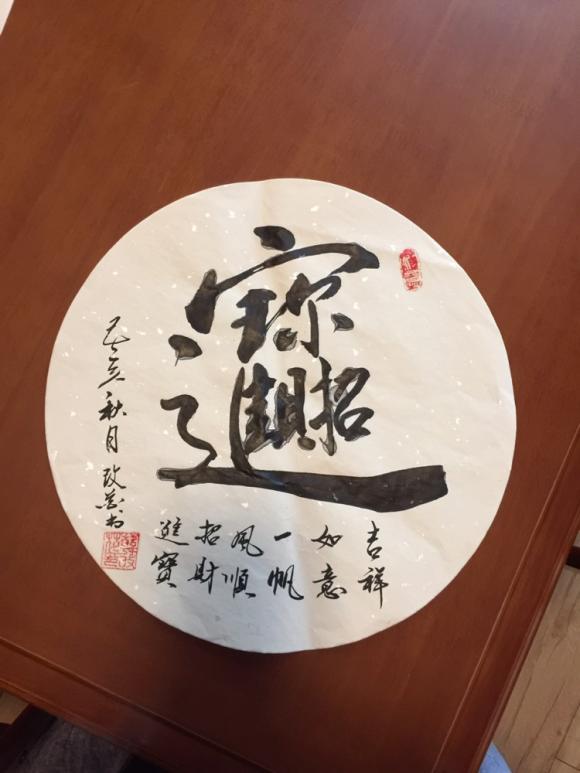 招財進寶
吉祥
如意
一帆
風順
招財
進寶
己亥秋月